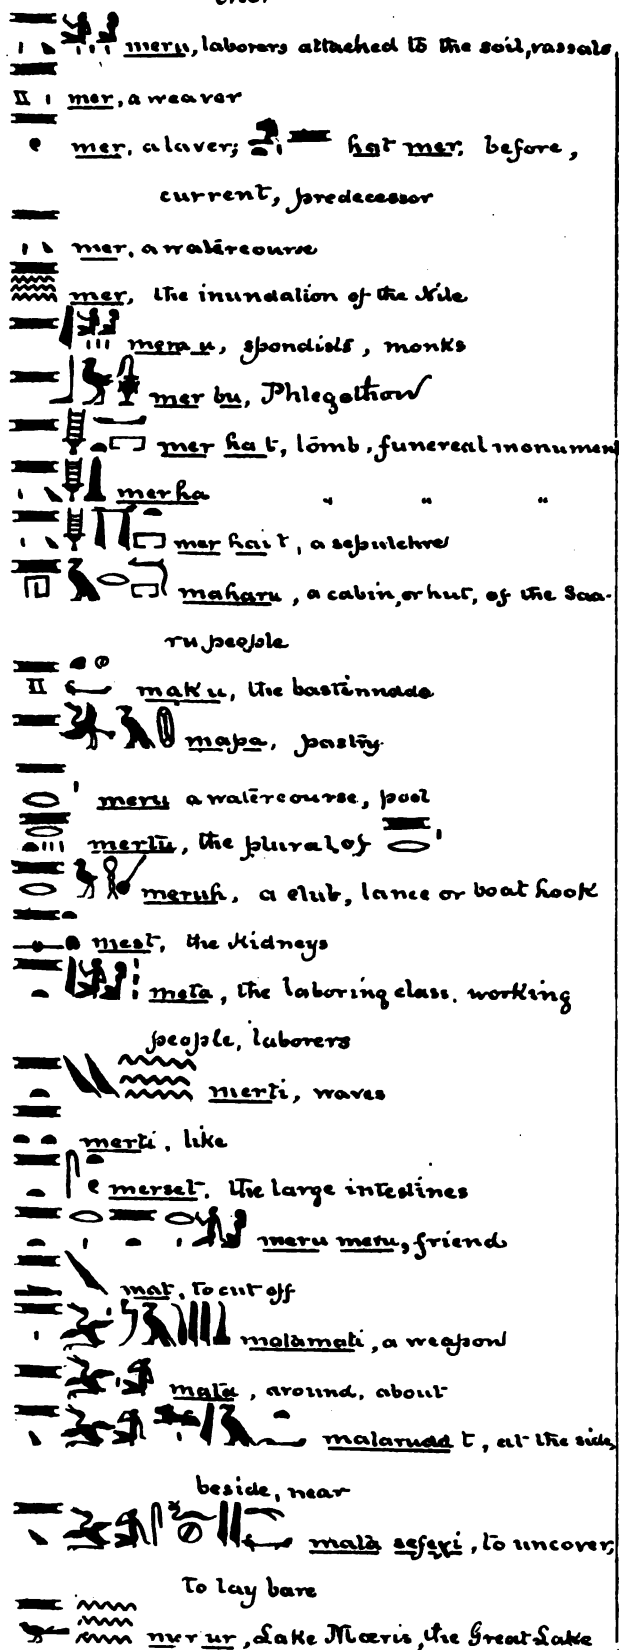 meru, laborers attached to the soil, vassals
mer, a weaver
mer, a laver; hat mer, before,
current, predecessor
mer, a watercourse
mer, the inundation of the Nile
mera u, spondists, monks
mer bu, Phlegethon
mer ha t, tomb, funereal monument
mer ha " " "
mer hai t, a sepulchre
maharu, a cabin, or hut, of the Saa-
ru people
maku, the bastinnado
mapa, pastry
meru a watercourse, pool
mertu, the plural of
meruh, a club, lance or boat hook
mest, the kidneys
meta, the laboring class, working
people, laborers
merti, waves
merti, like
merset, the large intestines
meru meru, friend
mat, to cut off
matamati, a weapon
mata, around, about
matarudd t, at the side,
beside, near
mata sefexi, to uncover,
to lay bare
mer ur, Lake Mœris, the Great Lake